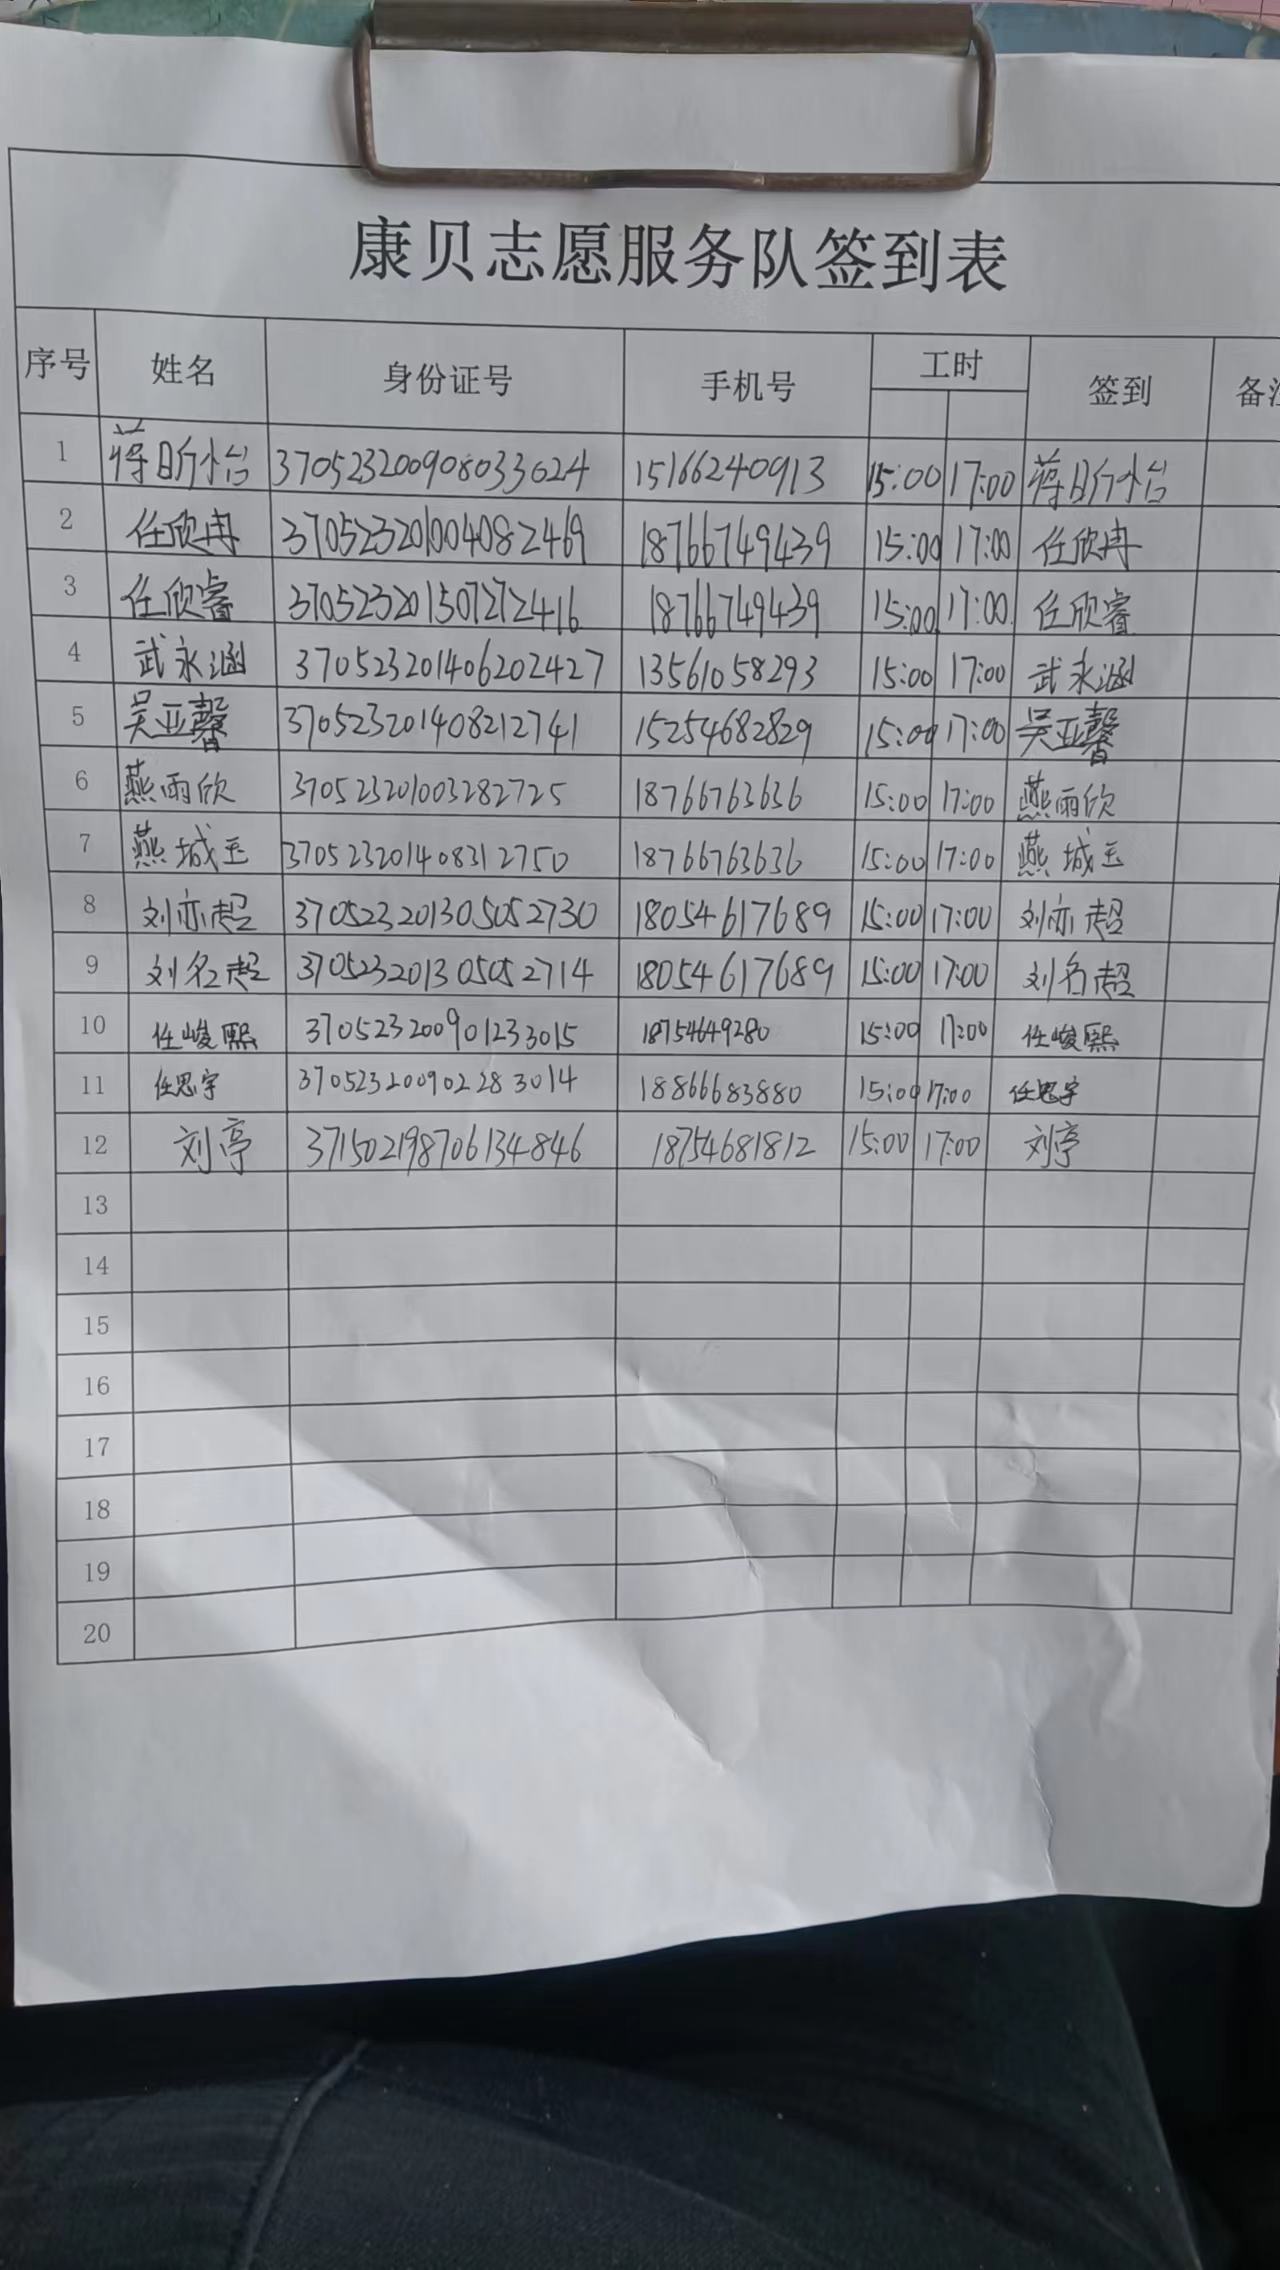 康贝志愿服务队签到表
序号 姓名 身份证号 手机号 工时 签到 备注
1 蒋昕怡 370523200908033624 15166240913 15:00 17:00 蒋昕怡
2 任欣冉 370523201004082469 18766749439 15:00 17:00 任欣冉
3 任欣睿 370523201507272416 18766749439 15:00 17:00 任欣睿
4 武永涵 370523201406202427 13561058293 15:00 17:00 武永涵
5 吴亚馨 370523201408212741 15254682829 15:00 17:00 吴亚馨
6 燕雨欣 370523201003282725 18766763636 15:00 17:00 燕雨欣
7 燕城玉 370523201408312750 18766763636 15:00 17:00 燕城玉
8 刘亦超 370523201305052730 18054617689 15:00 17:00 刘亦超
9 刘名超 370523201305052714 18054617689 15:00 17:00 刘名超
10 任峻熙 370523200901233015 18754649280 15:00 17:00 任峻熙
11 任思宇 370523200902283014 18866683880 15:00 17:00 任思宇
12 刘亭 371502198706134846 18754681812 15:00 17:00 刘亭
13
14
15
16
17
18
19
20